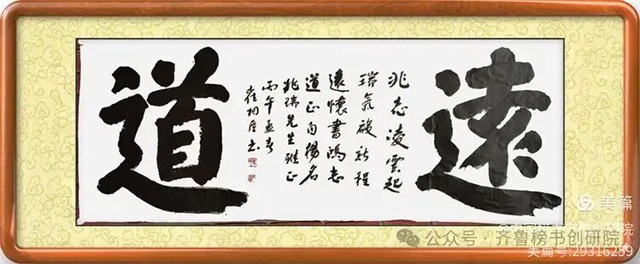 遠
兆志凌雲起
瑞氣破新程
遠懷書鴻志
道正自揚名
兆瑞先生雅正
丙午孟春
道
美篇
公众号 · 齐鲁榜书创研院
美篇号:29316299